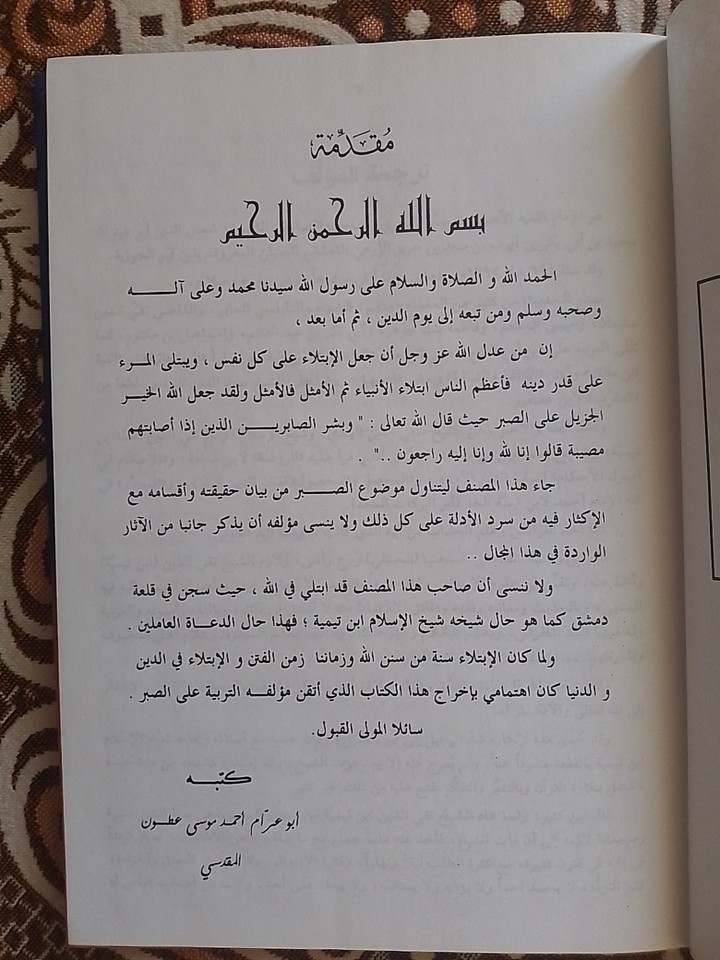 مُقَدِّمة
بسم الله الرحمن الرحيم
الحمد الله و الصلاة والسلام على رسول الله سيدنا محمد وعلى آلـــــه
وصحبه وسلم ومن تبعه إلى يوم الدين ، ثم أما بعد ،
إن من عدل الله عز وجل أن جعل الإبتلاء على كل نفس ، ويبتلى المـــرء
على قدر دينه فأعظم الناس ابتلاء الأنبياء ثم الأمثل فالأمثل ولقد جعل الله الخــير
الجزيل على الصبر حيث قال الله تعالى : " وبشر الصابريـــن الذين إذا أصابتهم
مصيبة قالوا إنا لله وإنا إليه راجعون .." .
جاء هذا المصنف ليتناول موضوع الصـــبر من بيان حقيقته وأقسامه مع
الإكثار فيه من سرد الأدلة على كل ذلك ولا ينسى مؤلفه أن يذكر جانبا من الآثار
الواردة في هذا المجال ..
ولا ننسى أن صاحب هذا المصنف قد ابتلي في الله ، حيث سجن في قلعة
دمشق كما هو حال شيخه شيخ الإسلام ابن تيمية ؛ فهذا حال الدعـاة العاملين .
ولما كان الإبتلاء سنة من سنن الله وزماننا زمن الفتن و الإبتلاء في الدين
و الدنيا كان اهتمامي بإخراج هذا الكتاب الذي أتقن مؤلفــه التربية على الصبر .
سائلا المولى القبول.
كتبـــه
أبو عزام احمد موسى عطــون
المقدسي